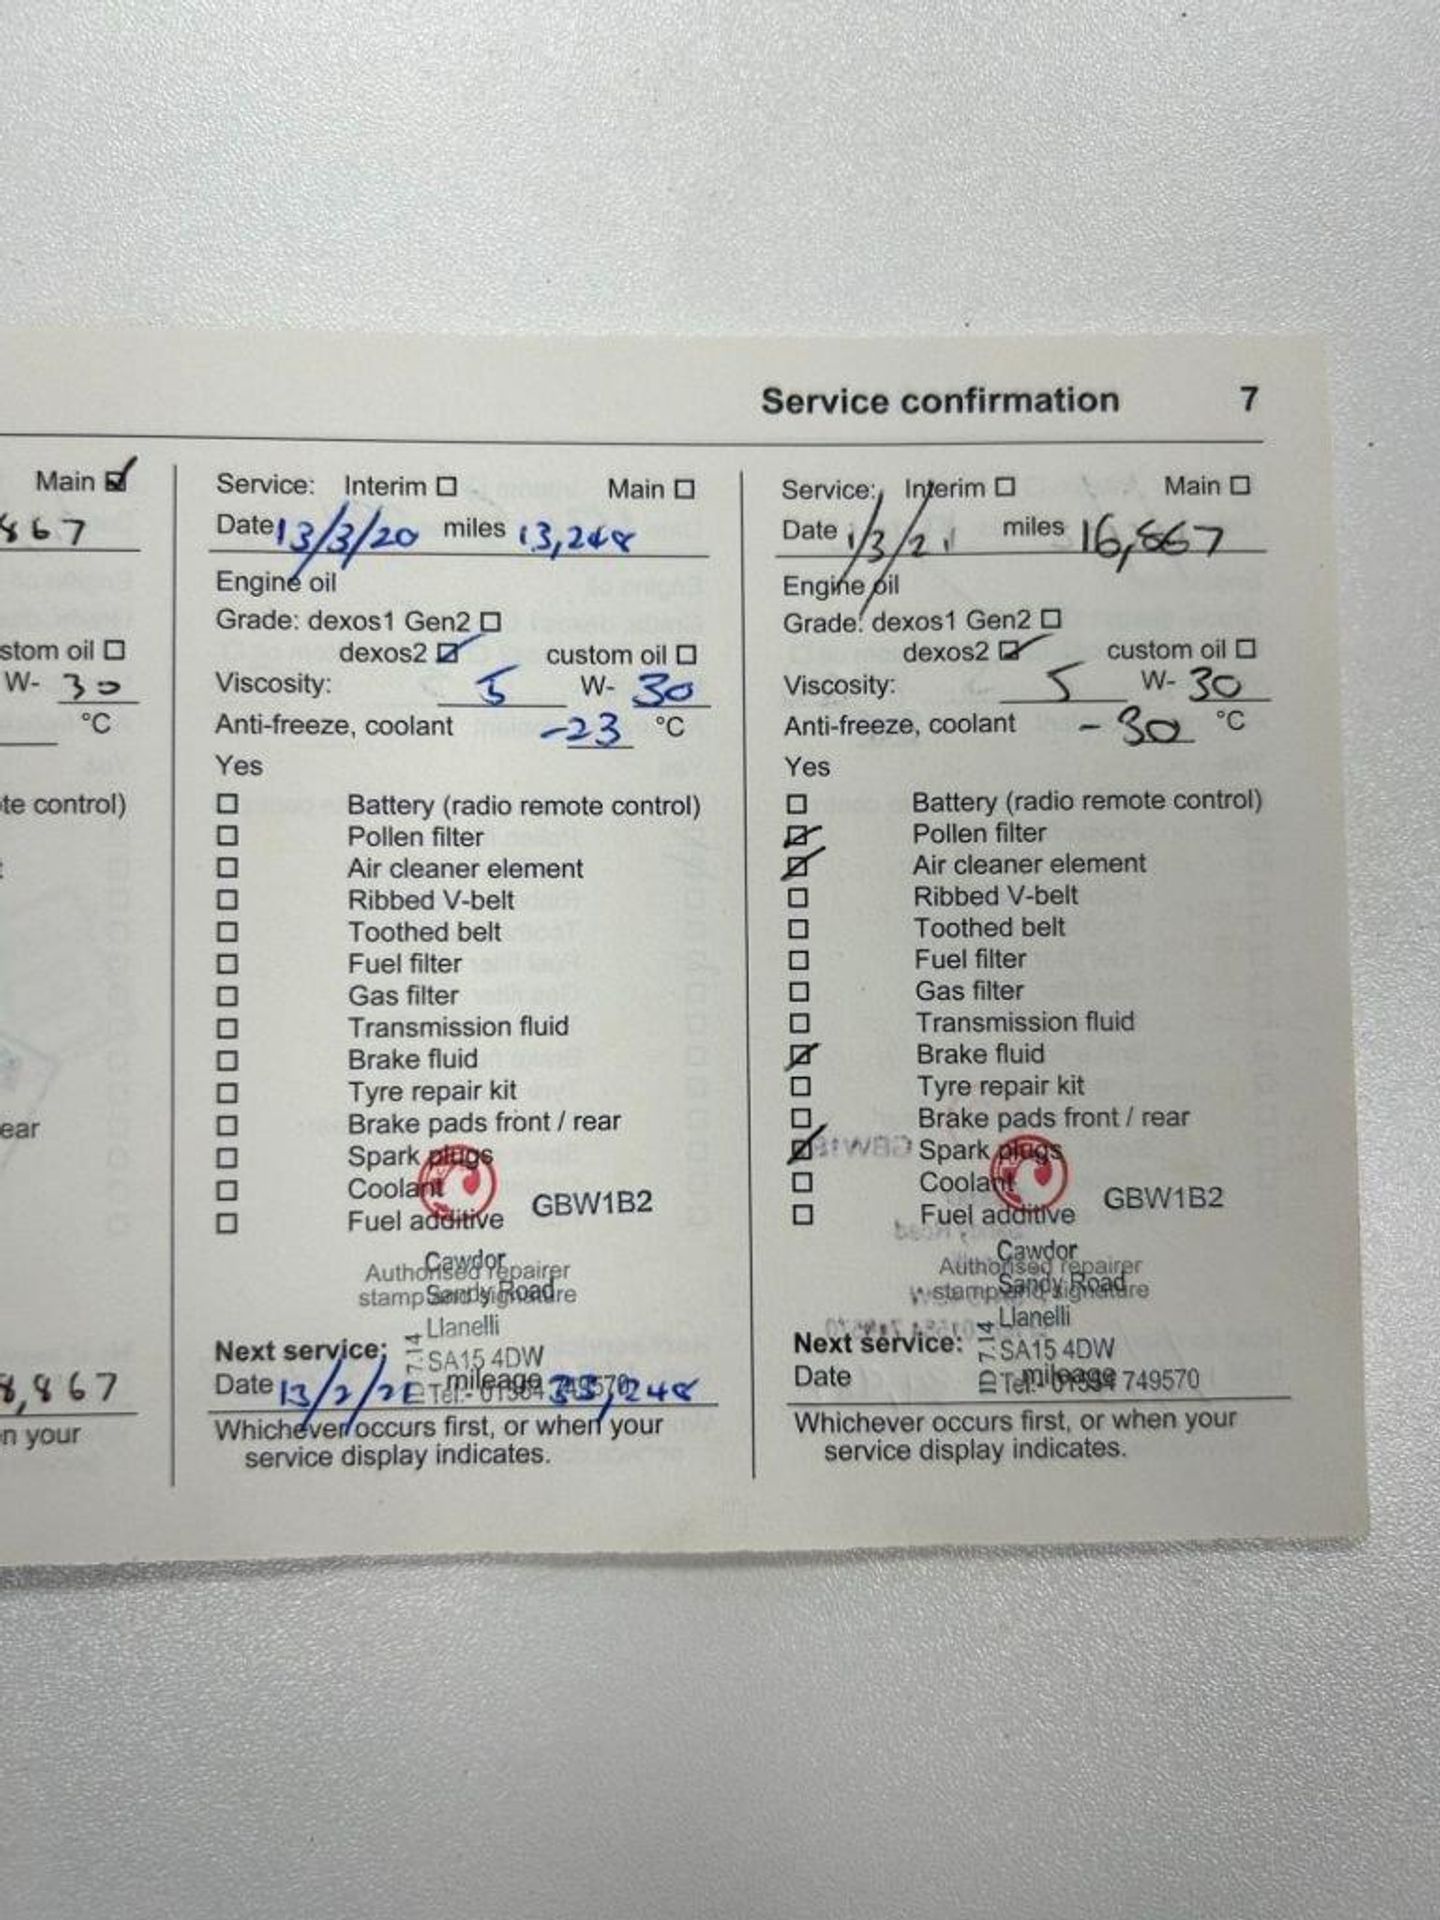 Service confirmation 7
Main
867
stom oil
W- 30
°C
te control)
ear
8,867
n your
Service: Interim Main
Date 13/3/20 miles 13,248
Engine oil
Grade: dexos1 Gen2
dexos2 custom oil
Viscosity: 5 W- 30
Anti-freeze, coolant -23 °C
Yes
Battery (radio remote control)
Pollen filter
Air cleaner element
Ribbed V-belt
Toothed belt
Fuel filter
Gas filter
Transmission fluid
Brake fluid
Tyre repair kit
Brake pads front / rear
Spark plugs
Coolant
Fuel additive
GBW1B2
Authorised repairer
stamp and signature
Cawdor
Sandy Road
Llanelli
SA15 4DW
Tel:- 01554 749570
Next service:
Date 13/2/21 mileage 33,248
Whichever occurs first, or when your
service display indicates.
Service: Interim Main
Date 1/3/21 miles 16,867
Engine oil
Grade: dexos1 Gen2
dexos2 custom oil
Viscosity: 5 W- 30
Anti-freeze, coolant -30 °C
Yes
Battery (radio remote control)
Pollen filter
Air cleaner element
Ribbed V-belt
Toothed belt
Fuel filter
Gas filter
Transmission fluid
Brake fluid
Tyre repair kit
Brake pads front / rear
Spark plugs
Coolant
Fuel additive
GBW1B2
Authorised repairer
stamp and signature
Cawdor
Sandy Road
Llanelli
SA15 4DW
Tel:- 01554 749570
ID 7.14
Next service:
Date mileage
Whichever occurs first, or when your
service display indicates.